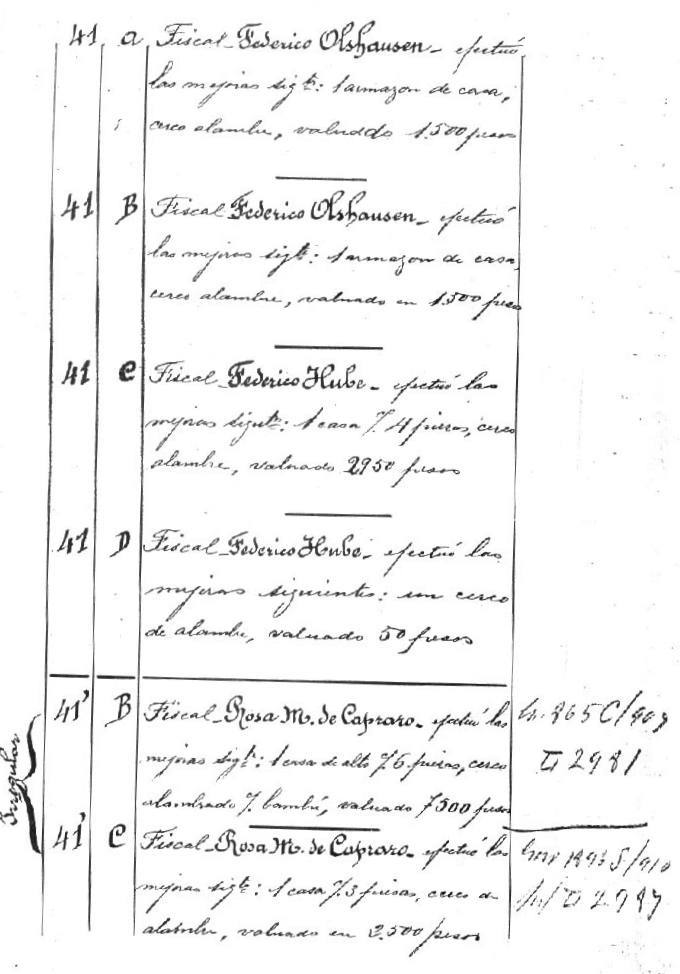 41 a Fiscal - Federico Olshausen - efectuó
las mejoras sigte: 1 armazon de casa,
cerco alambre, valuado 1.500 pesos
41 B Fiscal Federico Olshausen - efectuó
las mejoras sigte: 1 armazon de casa,
cerco alambre, valuado en 1.500 pesos
41 C Fiscal - Federico Hube - efectuó las
mejoras sigute: 1 casa 7. 4 piezas, cerco
alambre, valuado 2950 pesos
41 D Fiscal - Federico Hube - efectuó las
mejoras siguientes: un cerco
de alambre, valuado 50 pesos
41' B Fiscal - Rosa M. de Capraro - efectuó las
mejoras sigte: 1 casa de alto 7. 6 piezas, cerco
alambrado 7. bambú, valuado 7500 pesos
865 C/909
2981
Irregular
41' C Fiscal - Rosa M. de Capraro - efectuó las
mejoras sigte: 1 casa 7. 3 piezas, cerco de
alambre, valuado en 2.500 pesos
2987